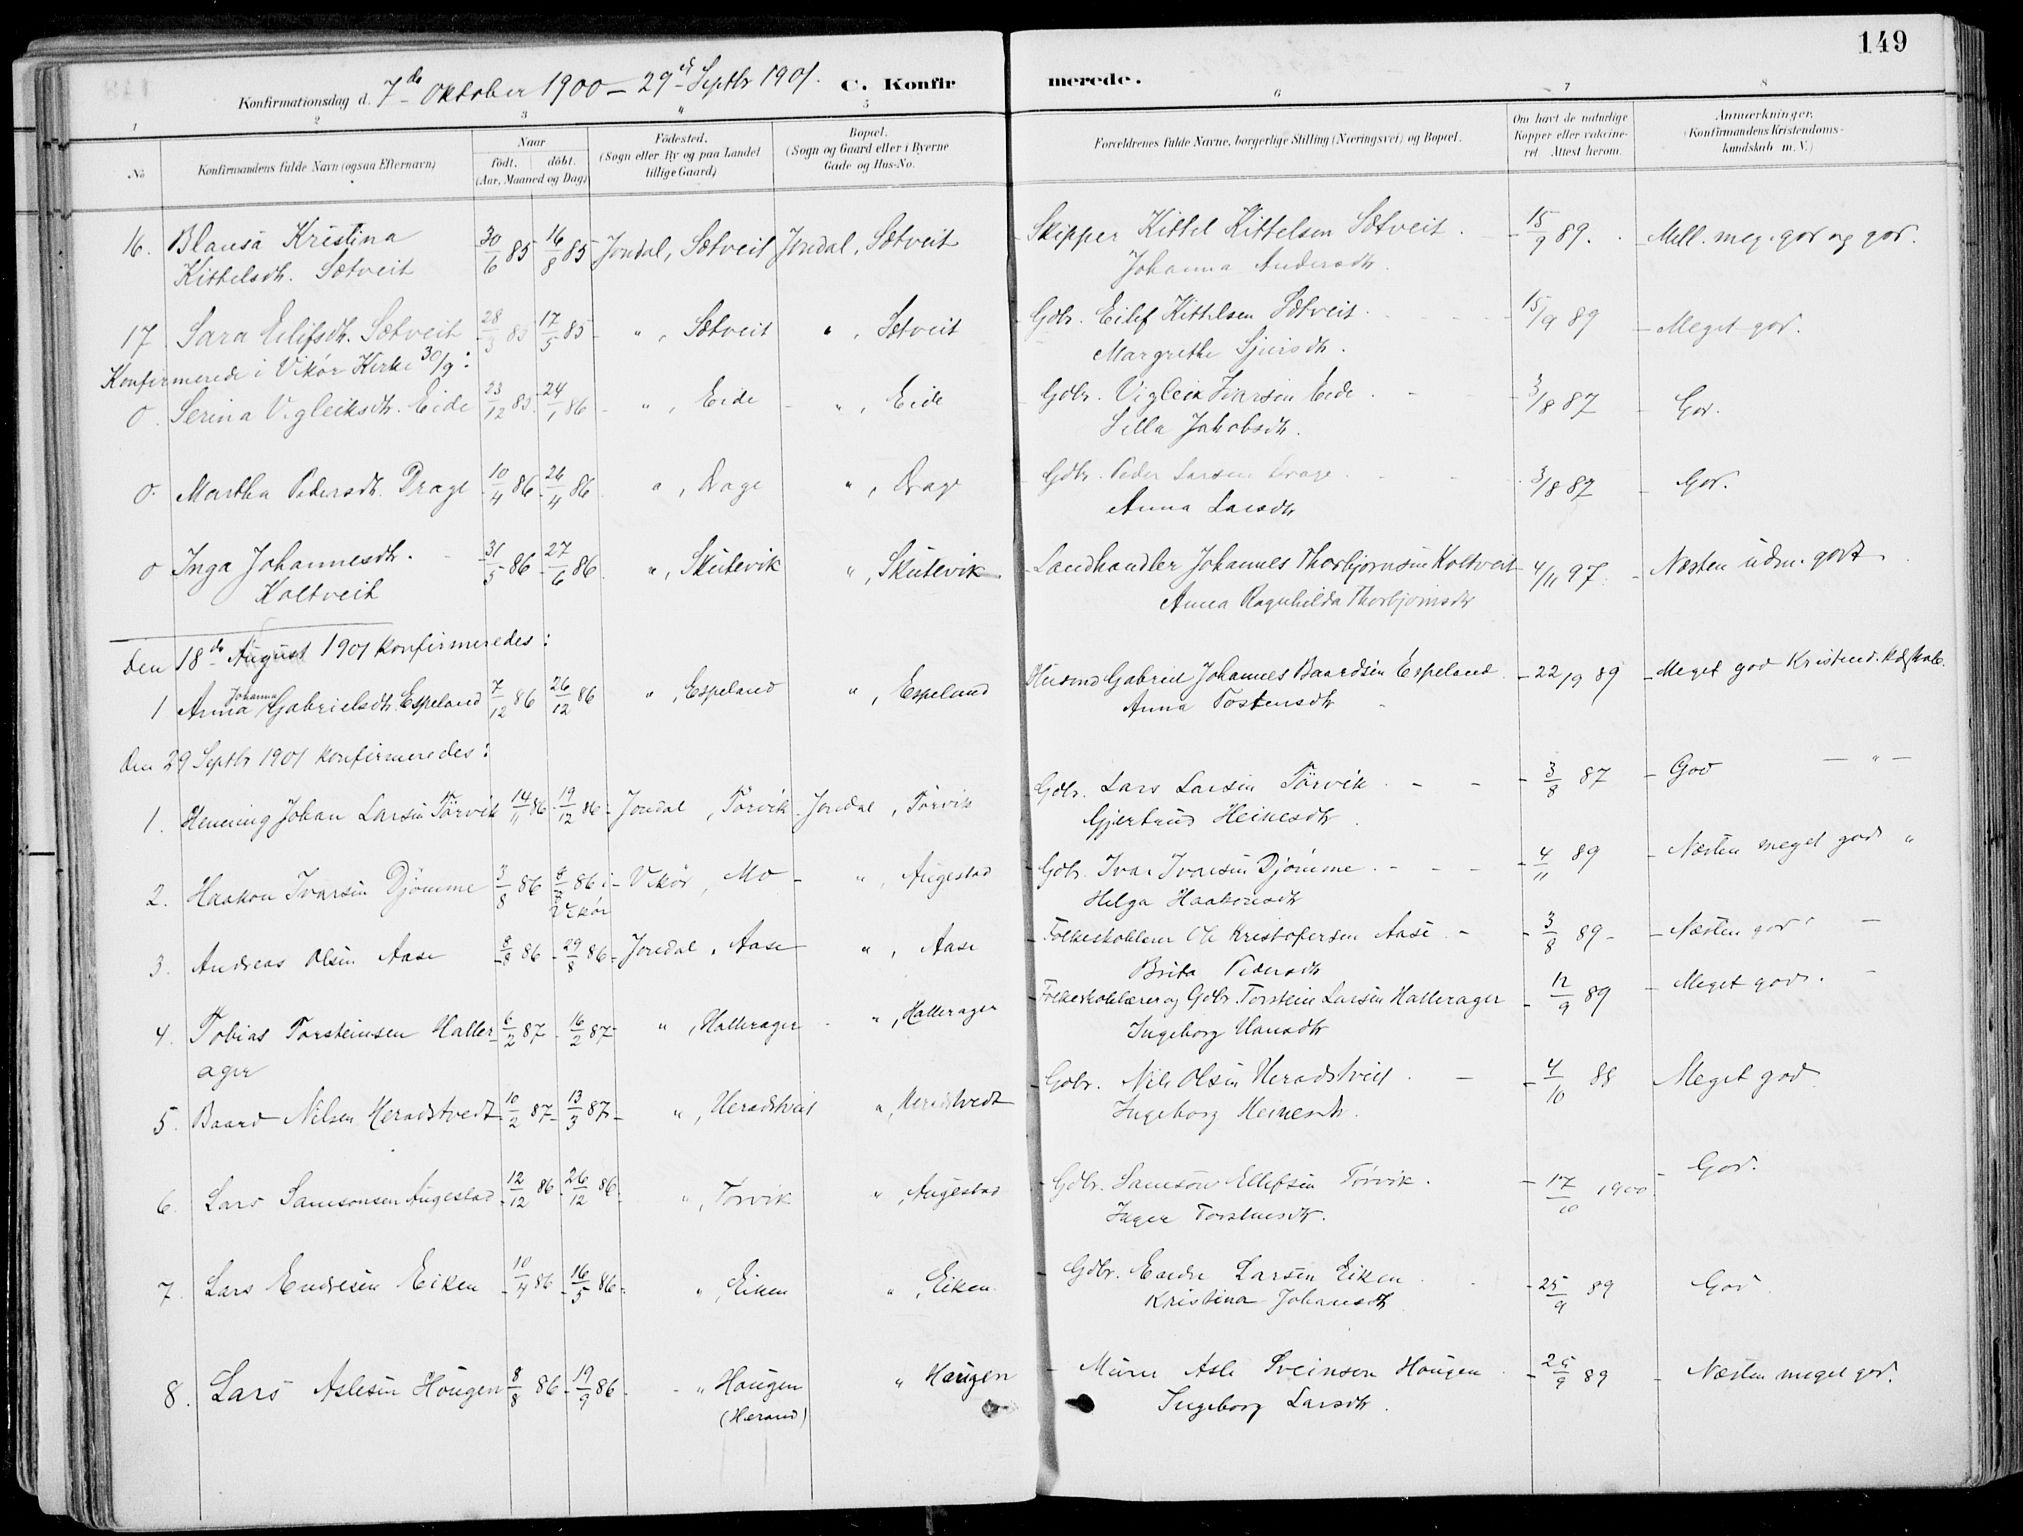 149
Konfirmationsdag d. 7de Oktober 1900 – 29de Septbr 1901.
C. Konfirmerede.
1 2 3 4 5 6 7 8
No
Konfirmandens fulde Navn (ogsaa Efternavn)
Naar
født. døbt.
(Aar, Maaned og Dag)
Fødested.
(Sogn eller By og paa Landet
tillige Gaard)
Bopæl.
(Sogn og Gaard eller i Byerne
Gade og Hus-No.
Forældrenes fulde Navne, borgerlige Stilling (Næringsvei) og Bopæl.
Om havt de naturlige
Kopper eller vaccine-
ret. Attest herom.
Anmærkninger.
(Konfirmandens Kristendoms-
kundskab m. V.)
16. Blansa Kristina 30/6 85 16/8 85 Jondal, Sætveit Jondal, Sætveit Skipper Kittel Kittelsen Sætveit. 15/9 89. Mell. meg. god og god.
Kittelsdtr. Sætveit Johanna Andersdtr.
17 Sara Eilifsdtr. Sætveit 28/3 85 17/5 85 " , Sætveit " , Sætveit Gdbr. Eilef Kittelsen Sætveit. 15/9 89 Meget god.
Margrethe Sjursdtr.
Konfirmerede i Vikør Kirke 30/9:
0. Serina Vigleiksdtr. Eide 23/12 85 24/1 86 " , Eide " , Eide Gdbr. Vigleik Ivarsen Eide 3/8 87 God.
Silla Jakobsdtr.
0. Martha Pedersdtr. Drage 10/4 86 26/4 86 " , Drage " , Drage Gdbr. Peder Larsen Drage 3/8 87 God.
Anna Larsdtr
0 Inga Johannesdtr. 31/5 86 27/6 86 " , Skutevik " , Skutevik Landhandler Johannes Thorbjørnsen Koltveit 4/11 97. Næsten udm. godt
Koltveit Anna Ragnhilda Thorbjørnsdtr
Den 18de August 1901 konfirmeredes:
1 Anna Johanna Gabrielsdtr. Espeland 7/12 86 26/12 86 " , Espeland " , Espeland Husmd Gabriel Johannes Baardsen Espeland 22/9 89 Meget god Kristend. kdskab.
Anna Tostensdtr
Den 29 Septbr 1901 konfirmeredes:
1. Henning Johan Larsen Tørvik 14/11 86 19/12 86 Jondal, Tørvik Jondal, Tørvik Gdbr. Lars Larsen Tørvik 3/8 87 God — " —
Gjertrud Heinesdtr
2. Haakon Ivarsen Djømme 3/8 86 8/8 86 i Vikør Vikør, Mo " , Augestad Gdbr. Ivar Ivarsen Djømme 4/11 89 Næsten meget god "
Helga Haakonsdtr
3. Andreas Olsen Aase 8/8 86 29/8 86 Jondal, Aase " , Aase Folkeskolelærer Ole Kristofersen Aase 3/8 89 Næsten god
Brita Pedersdtr
4. Tobias Torsteinsen Haller- 6/2 87 16/2 87 " , Hallerager " , Hallerager Folkeskolelærer og Gdbr. Torstein Larsen Hallerager 12/9 89 Meget god.
ager Ingeborg Hansdtr
5. Baard Nilsen Heradstvedt 10/2 87 13/3 87 " , Heradstveit " , Heradstvedt Gdbr. Nils Olsen Heradstveit 4/10 88 Meget god
Ingeborg Heinesdtr.
6. Lars Samsonsen Augestad 12/12 86 26/12 86 " , Tørvik " , Augestad Gdbr. Samson Ellefsen Tørvik. 17/10 1900 God.
Inger Torstensdtr.
7. Lars Endresen Eiken 10/4 86 16/5 86 " , Eiken " , Eiken. Gdbr. Endre Larsen Eiken 25/9 89 God
Kristina Johansdtr
8. Lars Aslesen Hougen 8/8 86 19/9 86 " Haugen " Haugen Murer Asle Sveinsen Hougen 25/9 89 Næsten meget god.
(Herand) Ingeborg Larsdtr.